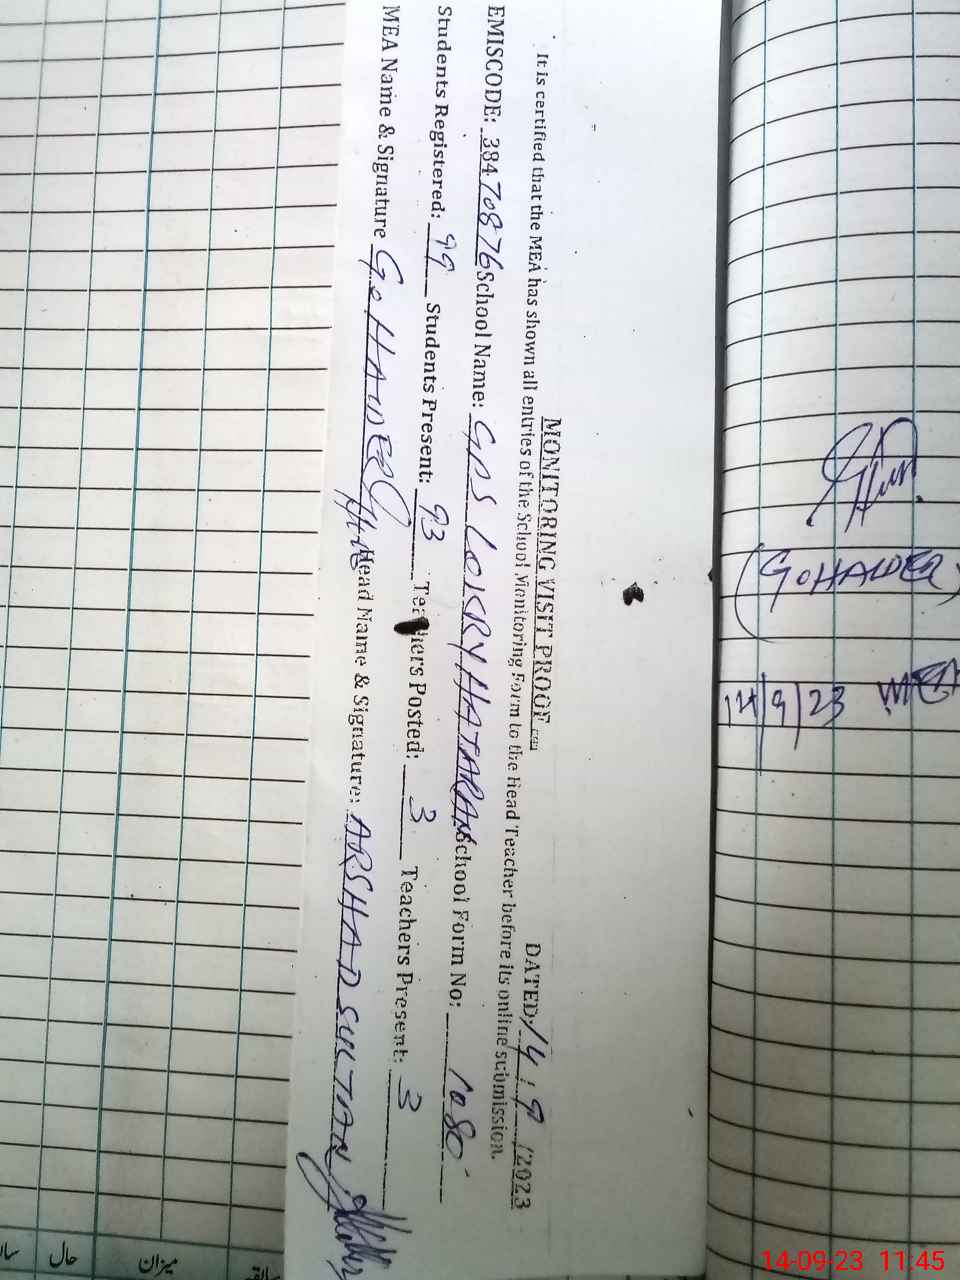 MONITORING VISIT PROOF
DATED: 14 / 9 /2023
It is certified that the MEA has shown all entries of the School Monitoring Form to the Head Teacher before its online submission.
EMISCODE: 38470876 School Name: GPS LOKRY HATARAN School Form No: 1080
Students Registered: 99 Students Present: 93 Teachers Posted: 3 Teachers Present: 3
MEA Name & Signature GOHAWER Head Name & Signature: ARSHAD SULTAN
(GOHAWER)
MEA
14/9/23
میزان
حال
سابقہ
14-09-23 11:45